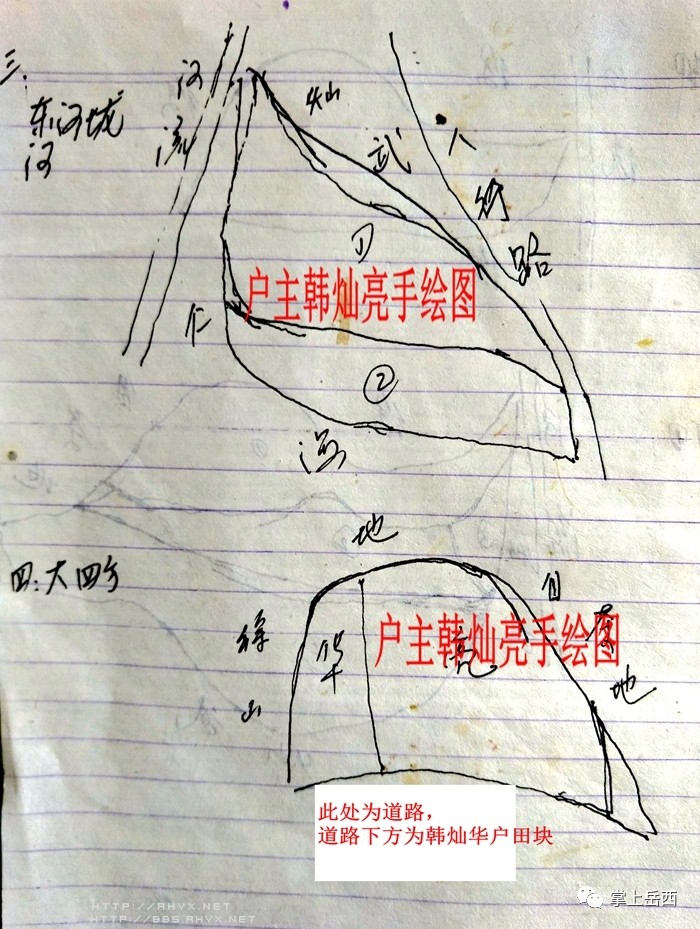 三.
东河坡
河
河
流
火山
武
人
行
路
①
户主韩灿亮手绘图
仁
②
湾
地
四:大四方
徐
山
华
亮
户主韩灿亮手绘图
自
地
此处为道路，
道路下方为韩灿华户田块
掌上岳西
HTTP://RHYX.NET
HTTP://BBS.RHYX.NET